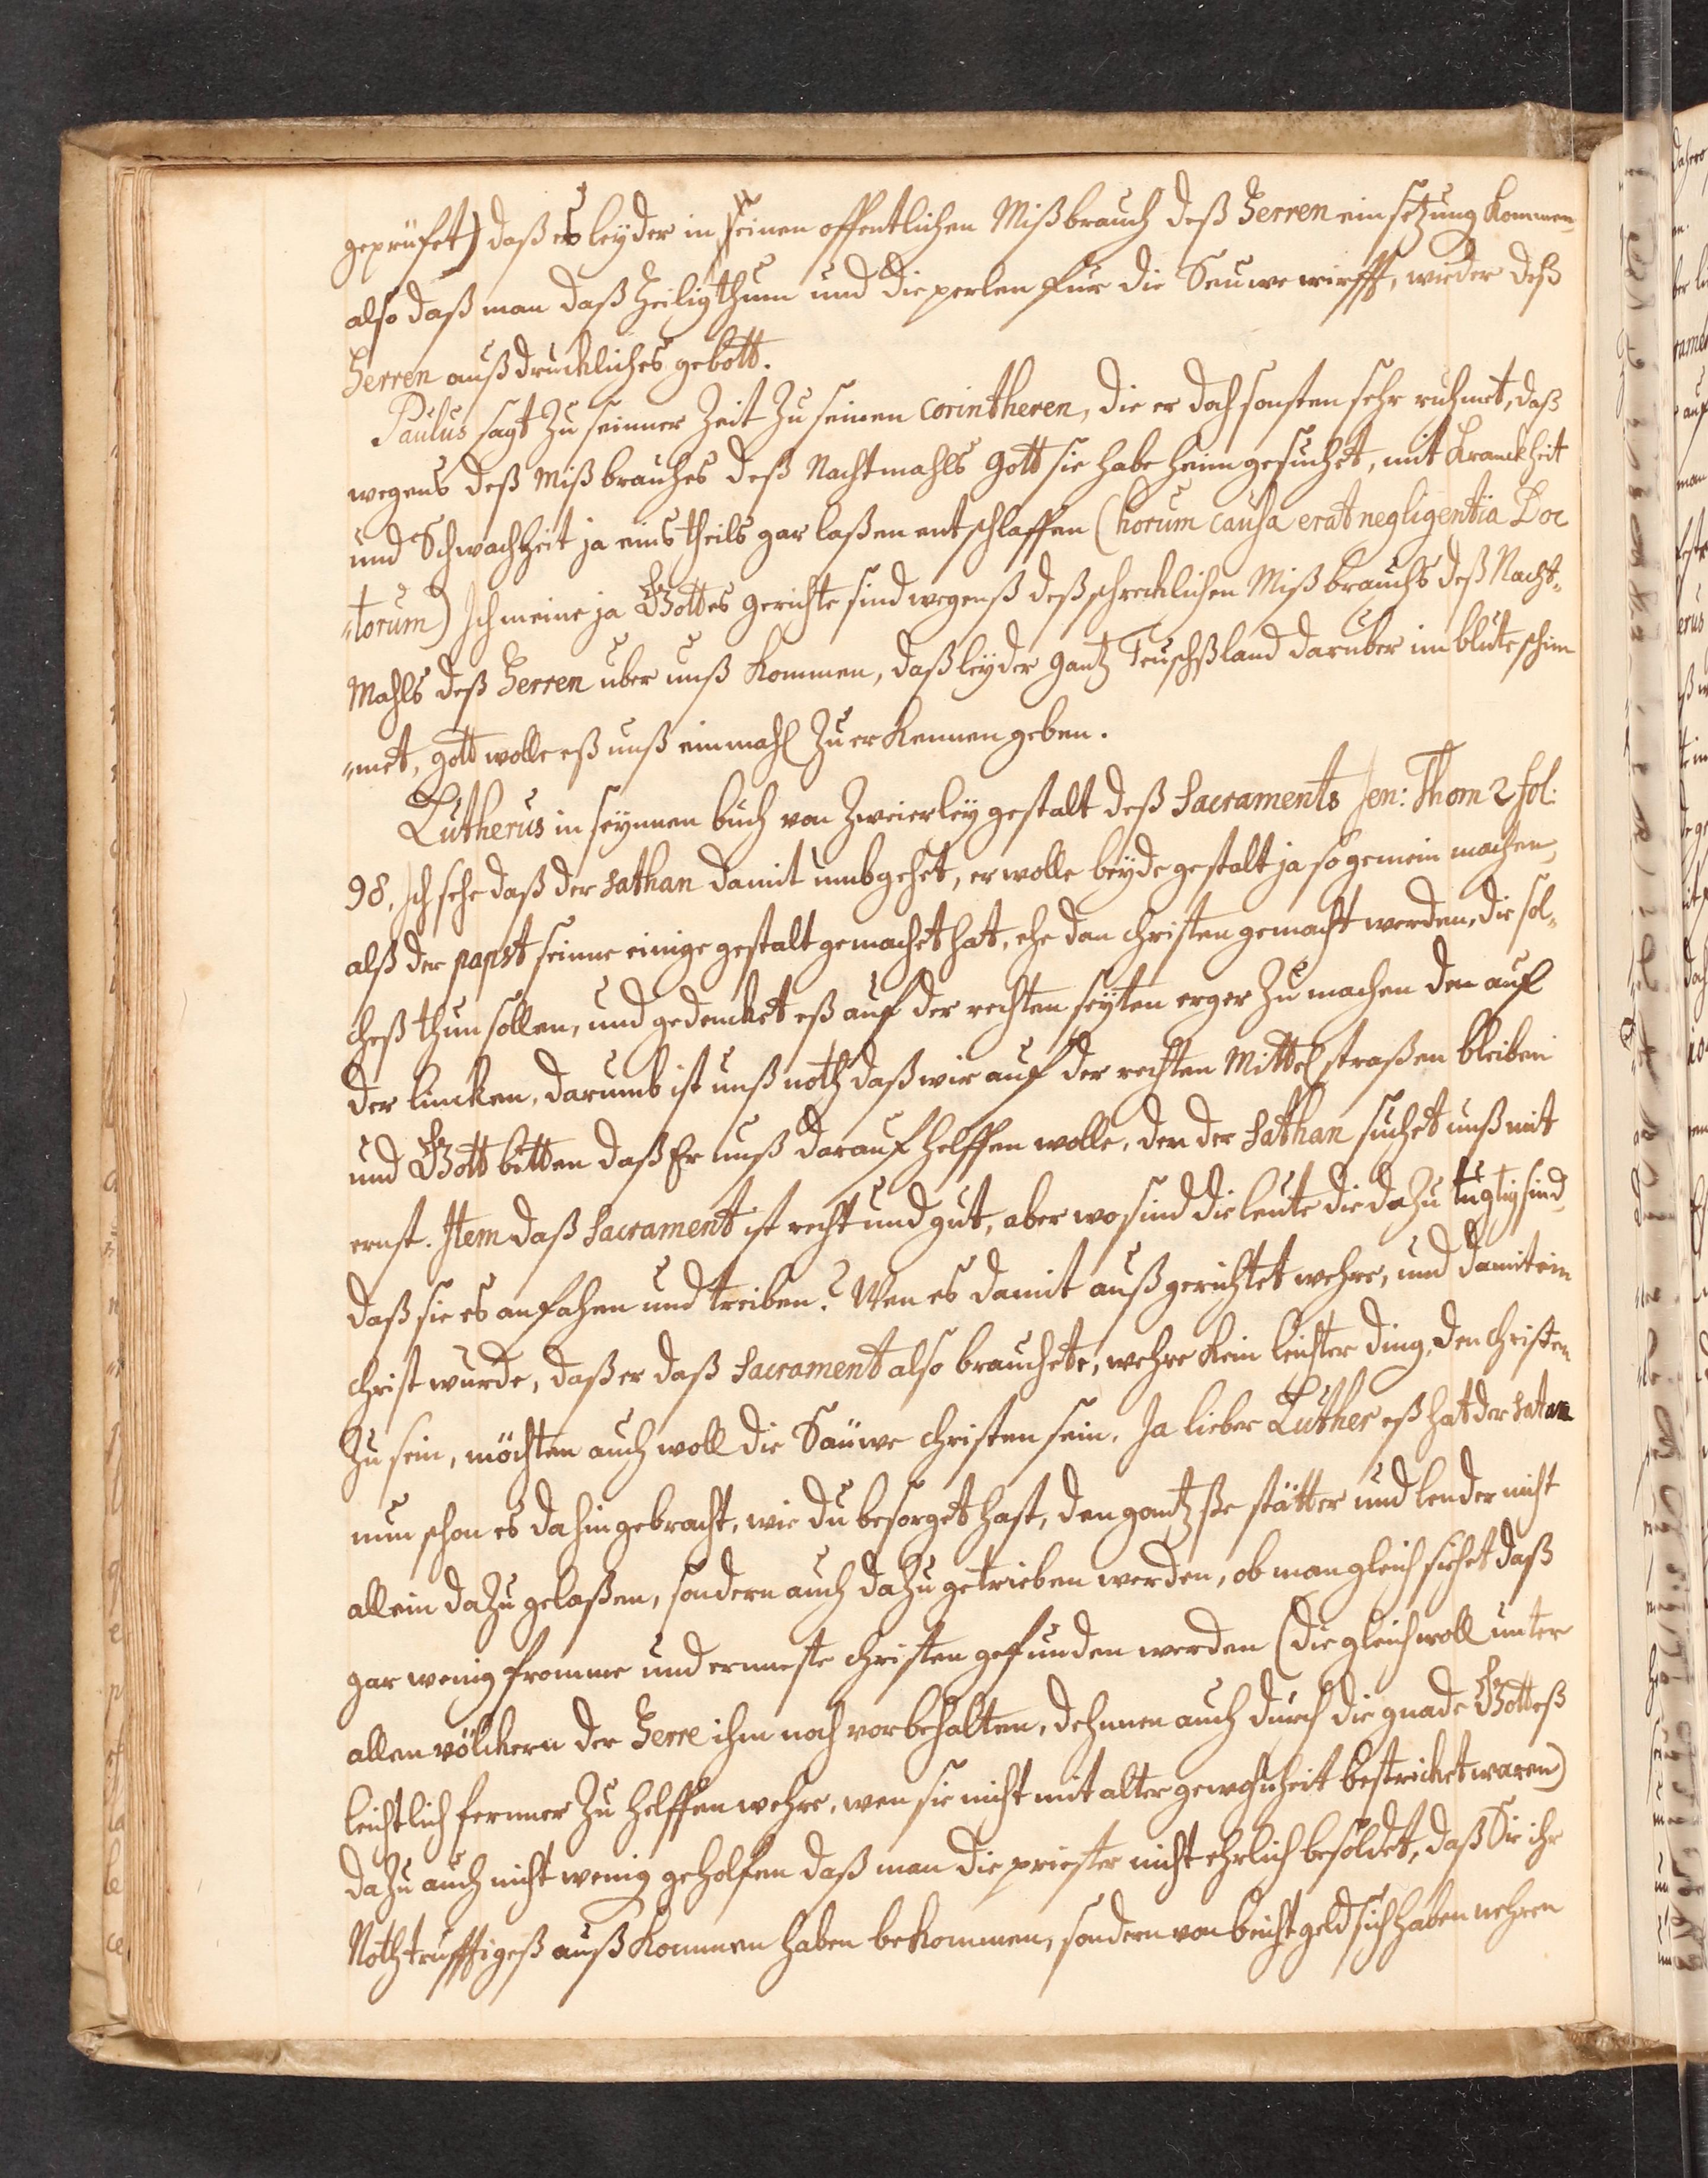 geprüfet) daß es leyder in seinen offentlichen Mißbrauch deß Herren einsetzung kommen
also daß man daß Heiligthum und die perlen fur die Seuwe wirfft, wieder deß
Herren außdruckliches gebott.
Paulus sagt zu seinner Zeit zu seinen corintheren, die er doch sonsten sehr ruhmet, daß
wegens deß Mißbrauches deß Nachtmahls Gott sie habe heimgesuchet, mit Kranckheit
und Schwachheit ja eins theils gar laßen entschlaffen (horum causa erat negligentia Doc
"torum) Ich meine ja Gottes gerichte sind wegenß deß schrecklichen Mißbrauchs deß Nacht-
Mahls deß Herren uber unß kommen, daß leyder gantz Teuschßland daruber im blute schim
"met, Gott wolle eß unß einmahl zu erkennen geben.
Lutherus in seynnen buch von zweierley gestalt deß Sacraments Jen: Thom 2 fol:
98. Ich sehe daß der Sathan damit umbgehet, er wolle beyde gestalt ja so gemein machen,
alß der papst seinne einige gestalt gemachet hat, ehe dan christen gemacht werden, die sol-
cheß thun sollen, und gedencket eß auf der rechten seyten erger zu machen den auf
der lincken, darumb ist unß noth daß wir auf der rechten Mittel straßen bleiben
und Gott bitten daß Er unß darauf helffen wolle, den der Sathan suchet unß mit
ernst. Item daß Sacrament ist recht und gut, aber wo sind die leute die dazu tugtig sind,
daß sie es anfahen und treiben? Wen es damit außgerichtet wehre, und damit ein
christ wurde, daß er daß Sacrament also brauchete, wehre kein leichter ding, den christen
zu sein, möchten auch woll die Säuwe christen sein. Ja lieber Luther eß hat der satan
nun schon es dahin gebracht, wie du besorget hast, den gantzße stätter und lender nicht
allein dazu gelaßen, sondern auch dazu getrieben werden, ob man gleich siehet daß
gar wenig fromme und erneste christen gefunden werden (die gleichwoll unter
allen völckern der Herre ihm noch vorbehalten, dehnnen auch durch die gnade Gotteß
leichtlich fernner zu helffen wehre, wen sie nicht mit alter gewohnheit bestricket waren)
dazu auch nicht wenig geholfen daß man die priester nicht ehrlich besoldet, daß Sie ihr
Nothtrufftigeß außkommen haben bekommen, sondern von beichtgeld sich haben nehren